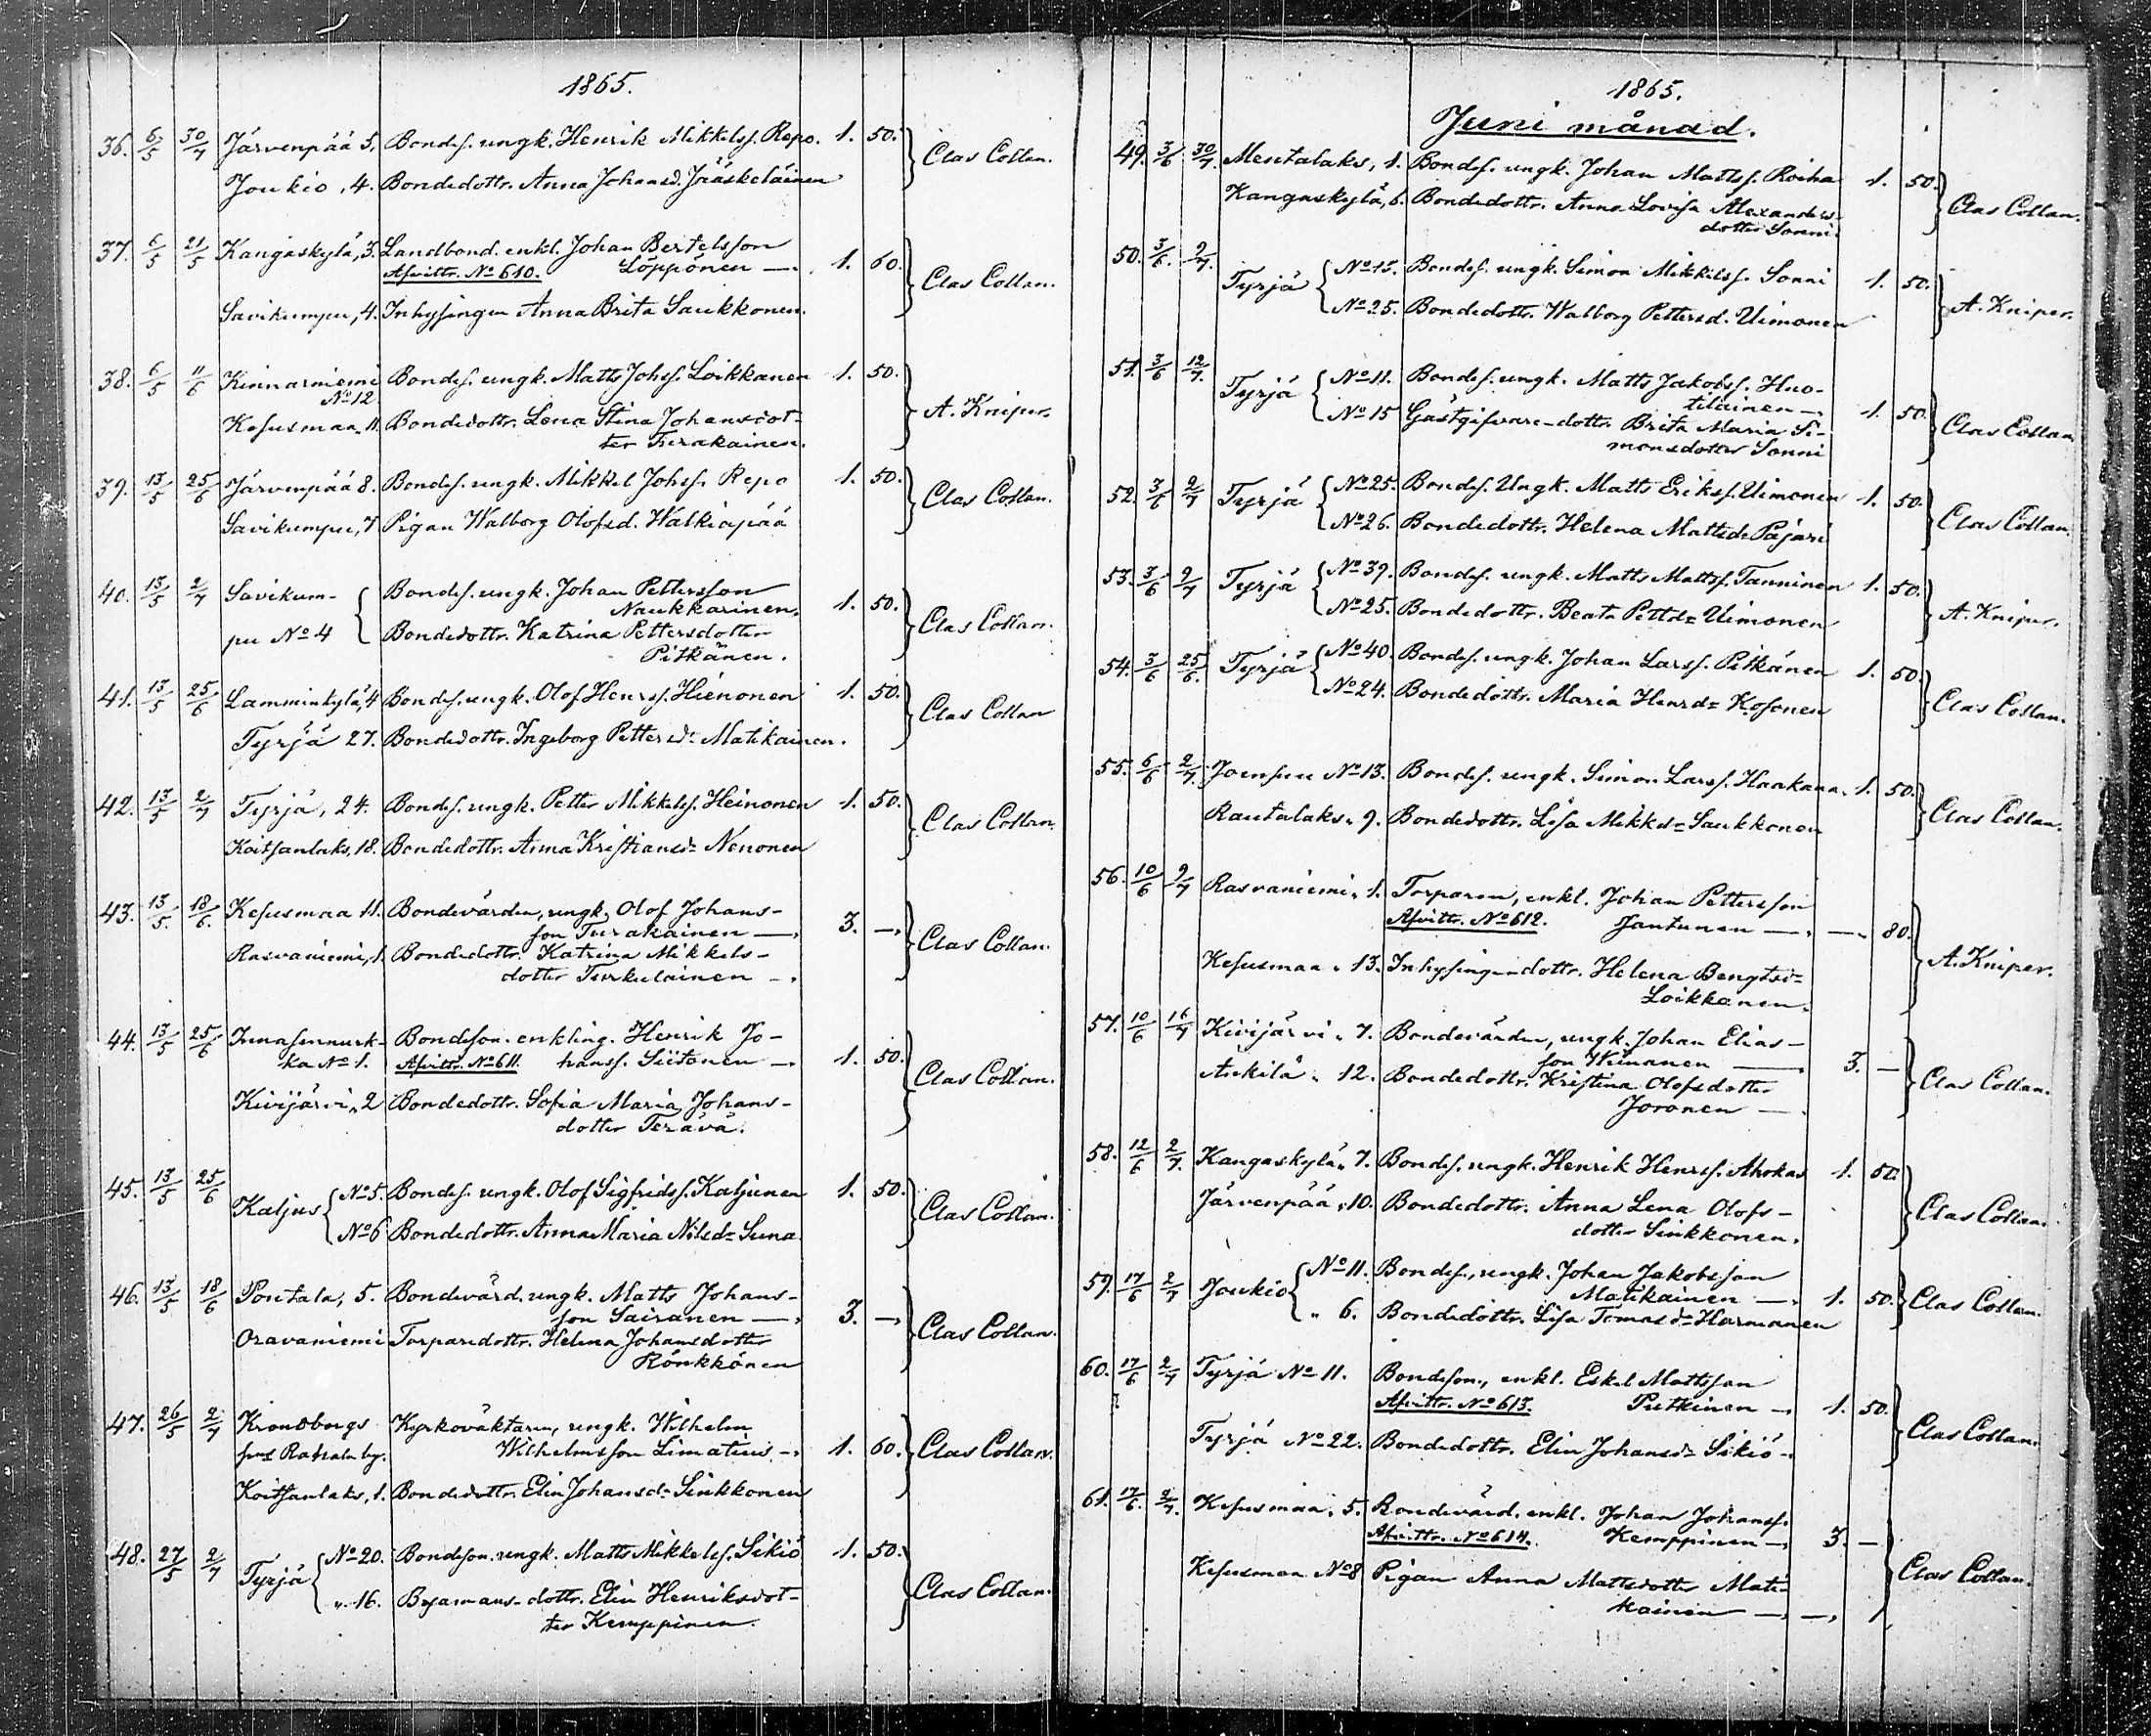 1865.
36. 6/5 30/7 Järvenpää 5. Bondes. ungk. Henrik Mikkelss. Repo. 1. 50. Clas Collan.
Joukio, 4. Bondedottr. Anna Johansd. Jääskeläinen
37. 6/5 21/5 Kangaskylä, 3. Landbond. enkl. Johan Bertelsson 1. 60. Clas Collan.
Afvittr. No 610. Löppönen —.
Savikumpu, 4. Inhysingen Anna Brita Saukkonen.
38. 6/5 11/6 Kinnarniemi Bondes. ungk. Matts Johss. Loikkanen 1. 50. A. Kniper.
No 12
Kesusmaa 11. Bondedottr. Lena Stina Johansdot-
ter Turakainen.
39. 13/5 25/6 Järvenpää 8. Bondes. ungk. Mikkel Johss. Repo 1. 50. Clas Collan.
Savikumpu, 7 Pigan Walborg Olofsd. Walkiapää
40. 13/5 2/7 Savikum- Bondes. ungk. Johan Pettersson
Naukkarinen. 1. 50. Clas Collan.
pu No 4 Bondedottr. Katrina Pettersdotter
Pitkänen.
41. 13/5 25/6 Lamminkylä, 4 Bondes. ungk. Olof Henrss. Hienonen 1. 50. Clas Collan
Tyrjä 27. Bondedottr. Ingeborg Pettersd: Matikainen.
42. 13/5 2/7 Tyrjä, 24. Bondes. ungk. Petter Mikkelss. Heinonen 1. 50. Clas Collan.
Koitsanlaks, 18. Bondedottr. Anna Kristiansd= Nenonen
43. 13/5. 18/6. Kesusmaa 11. Bondevärden, ungk. Olof Johans- 3. —. Clas Collan.
son Turakainen —.
Rasvaniemi, 1. Bondedottr. Katrina Mikkels-
dotter Turkulainen —.
44. 13/5 25/6 Innasennurk- Bondeson. enkling. Henrik Jo- 1. 50. Clas Collan.
ka No 1. Afvittr. No 611. hanss. Siitonen —.
Kivijärvi, 2 Bondedottr. Sofia Maria Johans-
dotter Terävä.
45. 13/5 25/6 Kaljus No 5. Bondes. ungk. Olof Sigfridss. Kaljunen 1. 50. Clas Collan.
No 6 Bondedottr. Anna Maria Nilsd= Suna
46. 13/5 18/6 Pontala, 5. Bondevärd. ungk. Matts Johans- 3. —. Clas Collan.
son Sairanen —.
Oravaniemi Torparedottr. Helena Johansdotter
Rönkkönen
47. 26/5 2/7 Kronobergs Kyrkoväktaren, ungk. Wilhelm
Wilhelmsson Limatius —. 1. 60. Clas Collan.
Koitsanlaks, 1. Bondedottr. Elin Johansd= Sinkkonen
48. 27/5 2/7 Tyrjä No 20. Bondeson. ungk. Matts Mikkelss. Sikiö 1. 50. Clas Collan.
" 16. Byamans-dottr. Elin Henriksdot-
ter Kemppinen.
1865.
Juni månad.
49. 3/6 30/7. Mentalaks, 1. Bondes. ungk. Johan Mattss. Roiha 1. 50. Clas Collan.
Kangaskylä, 6. Bondedottr. Anna Lovisa Alexanders-
dotter Sonni.
50. 3/6. 9/7. Tyrjä No 15. Bondes. ungk. Simon Mikkelss. Sonni 1. 50. A. Kniper.
No 25. Bondedottr. Walborg Pettersd. Uimonen
51. 3/6 12/7. Tyrjä No 11. Bondes. ungk. Matts Jakobss. Huo-
tilainen —. 1. 50. Clas Collan
No 15 Gästgifvare-dottr. Brita Maria Si-
monsdotter Sonni
52. 3/6 2/7 Tyrjä No 25. Bondes. Ungk. Matts Erikss. Uimonen 1. 50. Clas Collan.
No 26. Bondedottr. Helena Mattsd= Pajari
53. 3/6 9/7 Tyrjä No 39. Bondes. ungk. Matts Mattss. Tanninen 1. 50. A. Kniper.
No 25. Bondedottr. Beata Pettd= Uimonen
54. 3/6 25/6. Tyrjä No 40. Bondes. ungk. Johan Larss. Pitkänen 1. 50. Clas Collan.
No 24. Bondedottr. Maria Henrd= Kosonen
55. 6/6 2/7. Joensuu No 13. Bondes. ungk. Simon Larss. Haakana. 1. 50. Clas Collan.
Rautalaks, 9. Bondedottr. Lisa Mikkd= Saukkonen
56. 10/6 9/7 Rasvaniemi, 1. Torparen, enkl. Johan Pettersson
Afvittr. No 612. Jantunen —. —. 80. A. Kniper.
Kesusmaa, 13. Inhysinge-dottr. Helena Bengtsd=
Loikkanen.
57. 10/6 16/7 Kivijärvi, 7. Bondevärden, ungk. Johan Elias-
son Wiinanen —. 3. — Clas Collan.
Ankilä, 12. Bondedottr. Kristina Olofsdotter
Joronen —.
58. 12/6 2/7. Kangaskylä, 7. Bondes. ungk. Henrik Henrss. Ahokas 1. 50. Clas Collan.
Järvenpää, 10. Bondedottr. Anna Lena Olofs-
dotter Sinkkonen.
59. 17/6 2/7 Joukio No 11. Bondes., ungk. Johan Jakobsson
Matikainen —. 1. 50. Clas Collan.
" 6. Bondedottr. Lisa Tomasd= Harmanen
60. 17/6 2/7 Tyrjä No 11. Bondeson., enkl. Eskel Mattsson
Afvittr. No 613. Putkinen —. 1. 50. Clas Collan.
Tyrjä No 22. Bondedottr. Elin Johansd= Sikiö.
61. 17/6. 2/7. Kesusmaa, 5. Bondevärd. enkl. Johan Johanss.
Afvittr. No 614. Kemppinen —. 3. — Clas Collan.
Kesusmaa No 8 Pigan Anna Mattsdotter Mati-
kainen —. —.